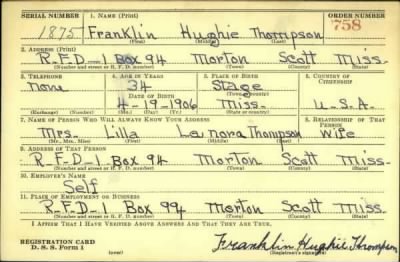 SERIAL NUMBER 1. NAME (Print) ORDER NUMBER
1875 Franklin Hughie Thompson 758
(First) (Middle) (Last)
2. ADDRESS (Print)
R.F.D-1 Box 94 Morton Scott Miss.
(Number and street or R. F. D. number) (Town) (County) (State)
3. TELEPHONE 4. AGE IN YEARS 5. PLACE OF BIRTH 6. COUNTRY OF CITIZENSHIP
none 34 Stage
DATE OF BIRTH
4-19-1906 Miss. U.S.A.
(Exchange) (Number) (Mo.) (Day) (Yr.) (State or country)
7. NAME OF PERSON WHO WILL ALWAYS KNOW YOUR ADDRESS 8. RELATIONSHIP OF THAT PERSON
Mrs. Lilla Lenora Thompson Wife
(Mr., Mrs., Miss) (First) (Middle) (Last)
9. ADDRESS OF THAT PERSON
R.F.D-1 Box 94 Morton Scott Miss.
(Number and street or R. F. D. number) (Town) (County) (State)
10. EMPLOYER'S NAME
Self
11. PLACE OF EMPLOYMENT OR BUSINESS
R.F.D-1 Box 94 Morton Scott Miss.
(Number and street or R. F. D. number) (Town) (County) (State)
I AFFIRM THAT I HAVE VERIFIED ABOVE ANSWERS AND THAT THEY ARE TRUE.
REGISTRATION CARD
D. S. S. Form 1 (over) Franklin Hughie Thompson
(Registrant's signature)